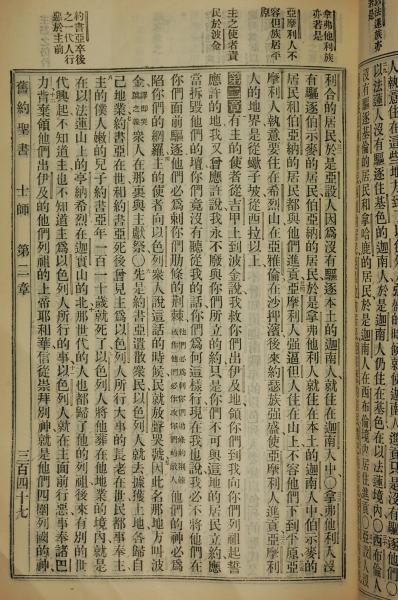 以法蓮人沒有驅逐住基色的迦南人於是迦南人仍住在基色在以法蓮境內〇西布倫人
拿弗他利族
亦若是
亞摩利人不
容但族居平
原
主之使者責
民於波金
約書亞卒後
之一代人行
惡於主前
利合的居民於是亞設人因爲沒有驅逐本土的迦南人就住在迦南人中〇拿弗他利人沒
有驅逐伯示麥的居民伯亞納的居民於是拿弗他利人就住在本土的迦南人中伯示麥的
居民和伯亞納的居民都與他們進貢亞摩利人強逼但人住在山上不容他們下到平原亞
摩利人執意要住在希烈山在亞雅倫在沙押濱後來約瑟族強盛使亞摩利人進貢亞摩利
人的地界是從蠍子坡從西拉以上
有主的使者從吉甲上到波金說我救你們出伊及地領你們到我向你們列祖起誓
應許的地我又曾應許說我永不廢與你們所立的約只是你們不可與這地的居民立約應
當拆毀他們的壇你們竟沒有聽從我的話你們爲何這樣行現在我也說我必不將他們在
你們面前驅逐他們必爲刺你們肋條的荆棘他們的神必爲
陷你們的網羅主的使者向以色列衆人說這話的時候民就放聲號哭因此名那地方叫波
金譯卽哭之義衆人在那裏與主獻祭〇先是約書亞遣散衆民以色列人就去據獲土地各歸自
己地業約書亞在世和約書亞死後曾見主爲以色列人所行大事的長老在世民都事奉主
主的僕人嫩的兒子約書亞年一百一十歲就死了以色列人將他葬在他地業的境內就是
在以法蓮山上的亭納希烈在迦實山的北那世代的人也都歸了他的列祖後來有別的世
代興起不知道主也不知道主爲以色列人所行的事以色列人就在主面前行惡事奉諸巴
力背棄領他們出伊及的他們列祖的上帝耶和華信從崇拜別神就是他們四圍列國的神
舊約聖書 士師 第二章 三百四十七